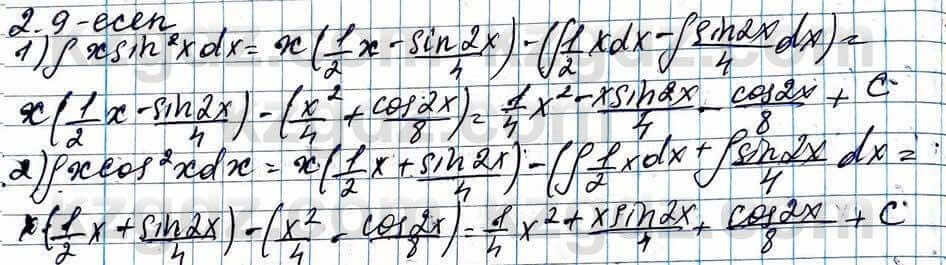 2.9-есеп
1) ∫ x sin²x dx = x(1/2 x - sin 2x/4) - (∫ 1/2 x dx - ∫ sin 2x/4 dx) =
x(1/2 x - sin 2x/4) - (x²/4 + cos 2x/8) = 1/4 x² - x sin 2x/4 - cos 2x/8 + C
2) ∫ x cos²x dx = x(1/2 x + sin 2x/4) - (∫ 1/2 x dx + ∫ sin 2x/4 dx =
x(1/2 x + sin 2x/4) - (x²/4 - cos 2x/8) = 1/4 x² + x sin 2x/4 + cos 2x/8 + C